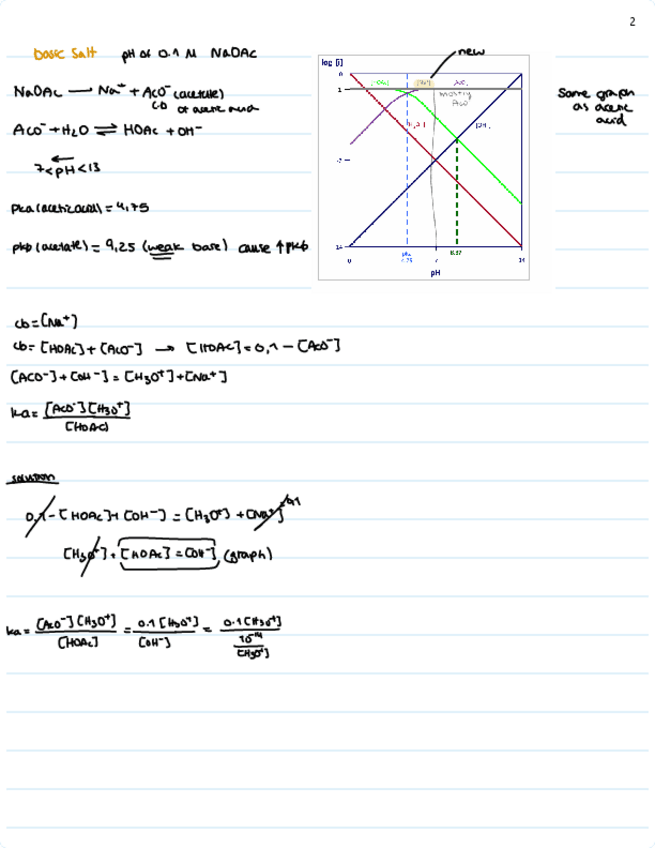 2
basic salt pH of 0.1 M NaOAc
new
NaOAc → Na⁺ + AcO⁻ (acetate)
cb of acetic acid
AcO⁻ + H₂O ⇌ HOAc + OH⁻
7 < pH < 13
pka (acetic acid) = 4,75
pkb (acetate) = 9,25 (weak base) cause ↑ pkb
log [i]
0
-1
mostly
AcO
-7
-14
0
7
8.87
14
pH
Same graph
as acetic
acid
cb = [Na⁺]
cb = [HOAc] + [AcO⁻] → [HOAc] = 0,1 - [AcO⁻]
[AcO⁻] + [OH⁻] = [H₃O⁺] + [Na⁺]
ka = [AcO⁻][H₃O⁺] / [HOAc]
solution
0,1 - [HOAc] + [OH⁻] = [H₃O⁺] + [Na⁺] 0,1
[H₃O⁺] + [HOAc] = [OH⁻] (graph)
ka = [AcO⁻][H₃O⁺] / [HOAc] = 0.1 [H₃O⁺] / [OH⁻] = 0.1 [H₃O⁺] / 10⁻¹⁴ / [H₃O⁺]